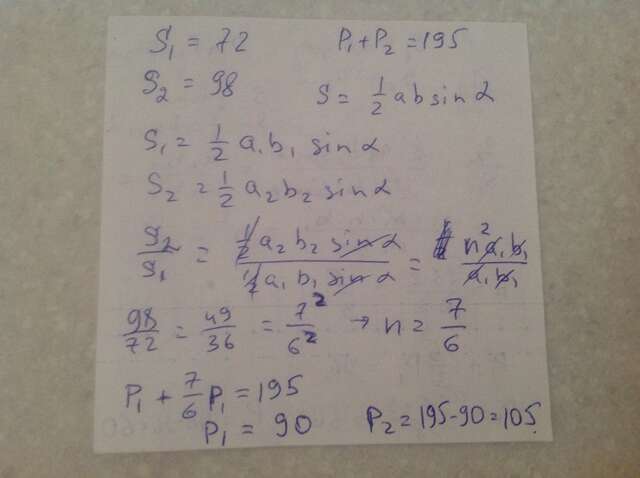 S₁ = 72 P₁+P₂ = 195
S₂ = 98 S = 1/2 ab sin α
S₁ = 1/2 a₁b₁ sin α
S₂ = 1/2 a₂b₂ sin α
S₂/S₁ = (1/2 a₂b₂ sin α)/(1/2 a₁b₁ sin α) = (n²a₁b₁)/(a₁b₁)
98/72 = 49/36 = 7²/6² → n = 7/6
P₁ + 7/6 P₁ = 195
P₁ = 90 P₂ = 195-90 = 105.